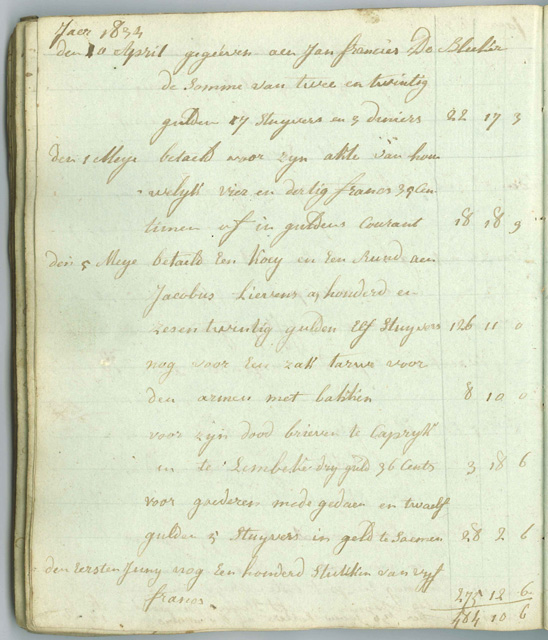 Jaer 1834
den 10 April gegeeven aen Jan francies De Bleker
de somme van twee en twintig
gulden 17 Stuyvers en 3 deniers 22 17 3
den 1 Meye betaeld voor zyn akte van hou
welyk vier en dertig francs 39 Cen
timen of in guldens Courant 18 18 9
den 5 Meye betaeld Een koey en Een aen
Jacobus Lievens honderd en
zesentwintig gulden Elf Stuyvers 126 11 0
nog voor Een zak tarwe voor
den armen met bakken 8 10 0
voor zyn dood brieven te Capryk
en te Lembeke dry guld 36 Cents 3 18 6
voor goederen mede gedaen en twaelf
gulden 5 Stuyvers in geld te saemen 28 2 6
den Eersten Juny nog Een honderd Stukken van vyf
francs 275 12 6
484 10 6